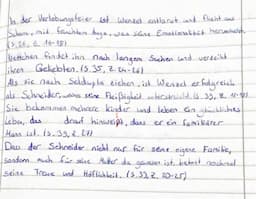 In der Verlobungsfeier ist Wenzel entlarvt und flieht aus
Scham, mit feuchten Augen, was seine Emotionalität hervorhebt.
(S.31, Z. 10-15)
Nettchen findet ihn nach langem Suchen und verzeiht
ihren Geliebten. (S.35, Z. 24-26)
Als sie nach Seldwyla ziehen, ist Wenzel erfolgreich
als Schneider, was seine Fleißigkeit unterstreicht. (S. 39, Z.
Sie bekommen mehrere Kinder und leben ein glückliches
Leben, das drauf hinweist, dass er ein familiärer
Mann ist. (S. 39, Z. 27)
Dass der Schneider nicht nur für seine eigene Familie,
sondern auch für seine Mutter da gewesen ist, betont nochmal
seine Treue und Höflichkeit. (S.33, Z. 20-25)